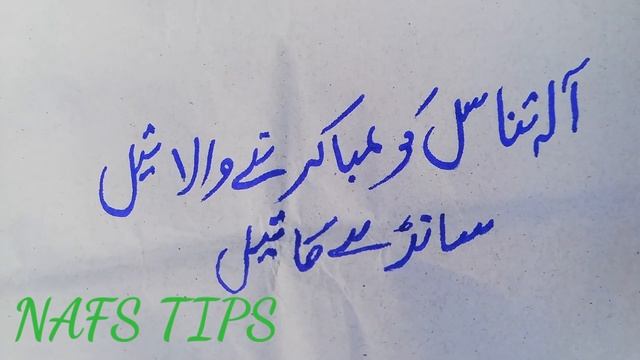 آلہ تناسل کو لمبا کرنے والا تیل
سانڈے کا تیل
NAFS TIPS